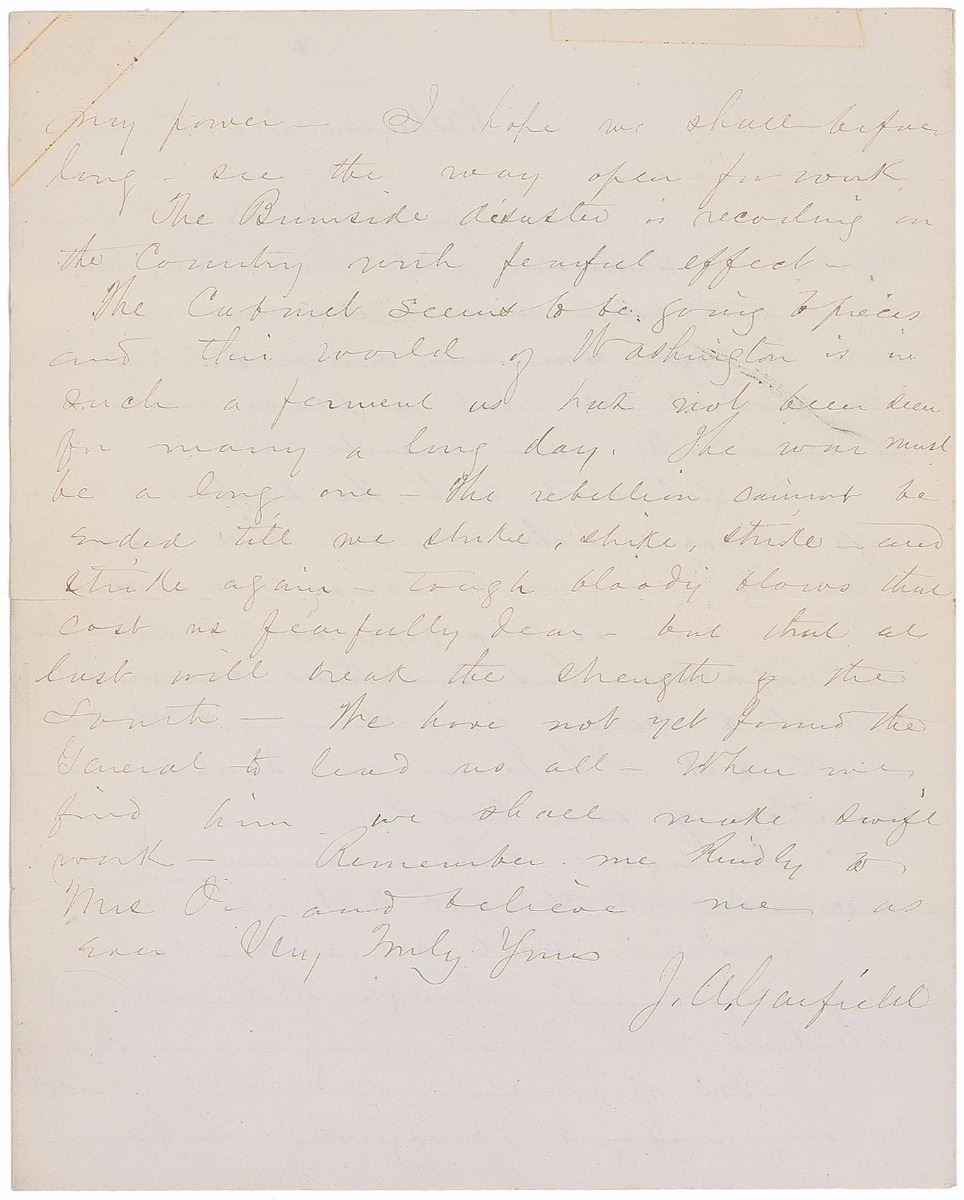 my power – I hope we shall before
long – see the way open for work.
The Burnside disaster is recoiling on
the Country with fearful effect –
The Cabinet seems to be going to pieces
and this world of Washington is in
such a ferment as has not been seen
for many a long day. The war must
be a long one – The rebellion cannot be
ended till we strike, strike, strike – and
strike again – tough bloody blows that
cost us fearfully dear – but that at
last will break the strength of the
South – We have not yet found the
General to lead us all – When we
find him we shall make swift
work – Remember me Kindly to
Mrs and believe me as
ever Very Truly Yours
J. A. Garfield